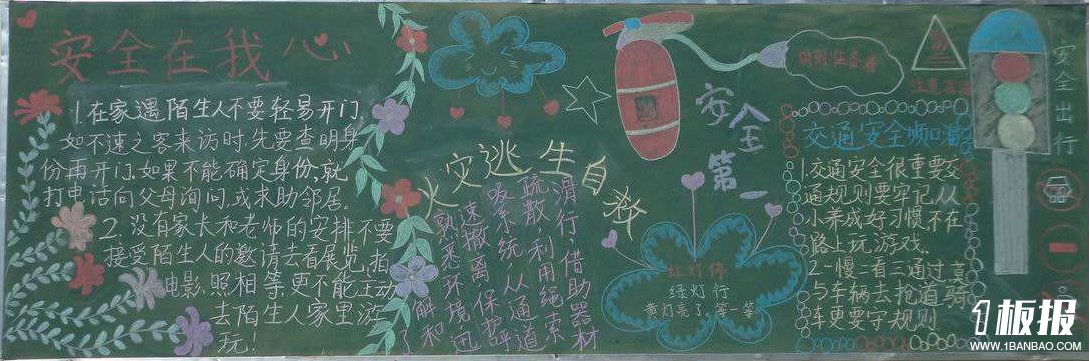 安全在我心
1.在家遇陌生人不要轻易开门.
如不速之客来访时.先要查明身
份再开门.如果不能确定身份,就
打电话向父母询问.或求助邻居.
2.没有家长和老师的安排不要
接受陌生人的邀请去看展览,拍
电影.照相等.更不能主动
去陌生人家里游
玩!
火灾逃生自救
熟悉环境迅
速撤离保
吸系统
疏散,利用绳索
滑行,借助器材
安全第一
红灯停
绿灯行
黄灯亮了,等一等
注意
交通安全顺口溜
1.交通安全很重要交
通规则要牢记.从
小养成好习惯.不在
路上玩游戏.
2一慢二看三通过莫
与车辆去抢道.骑
车更要守规则
安全出行
1板报
WWW.1BANBAO.COM